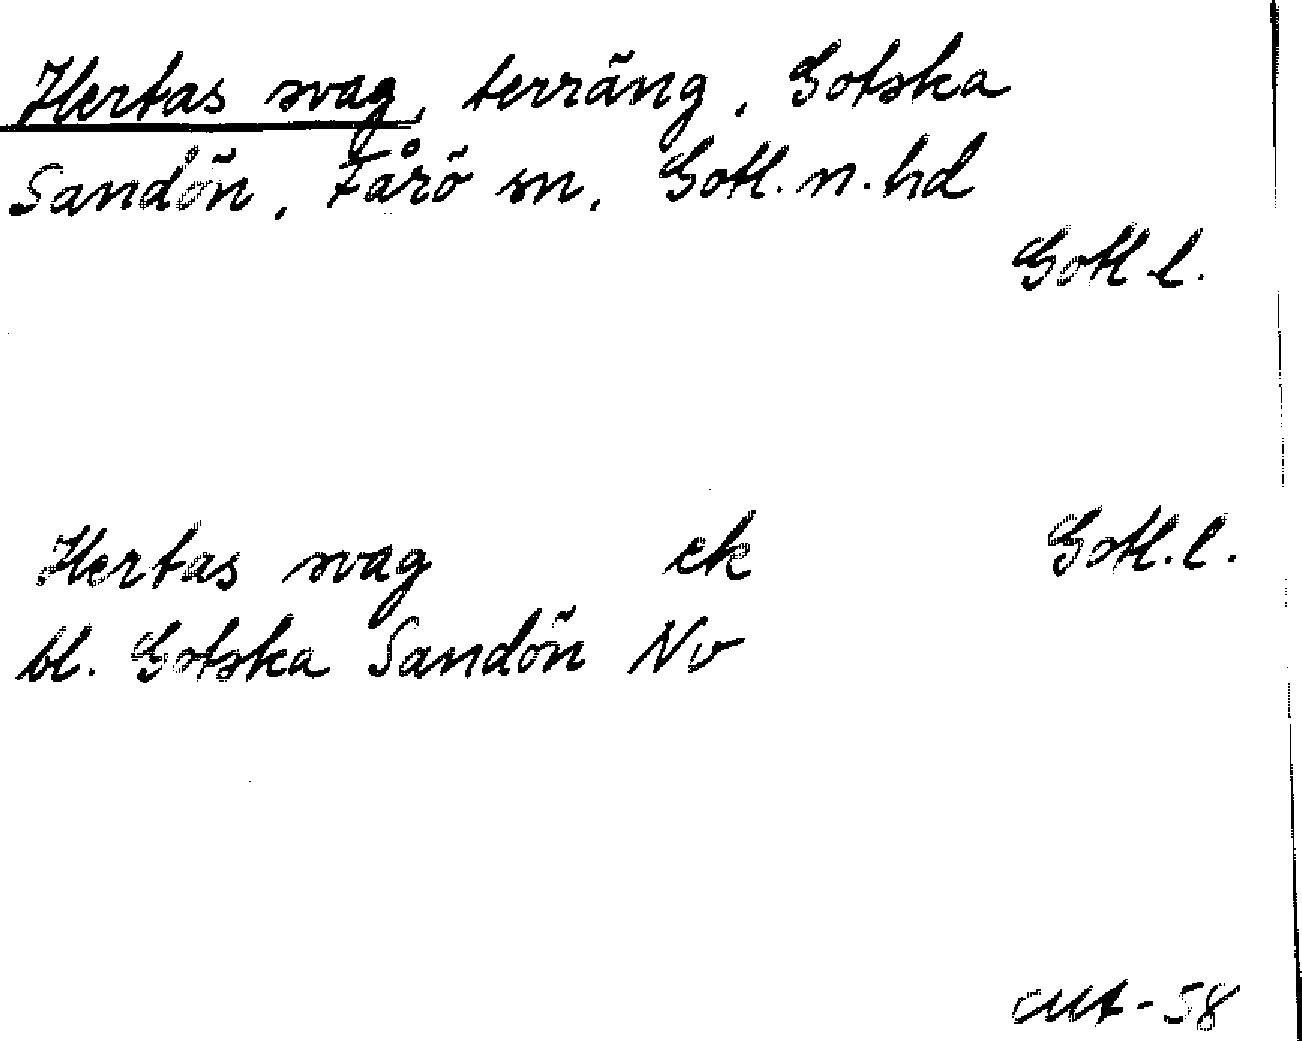 Hertas svag, terräng, Gotska
Sandön, Fårö sn, Gotl. n. hd
Gotl l.
Hertas svag ek Gotl. l.
bl. Gotska Sandön Nv
-58